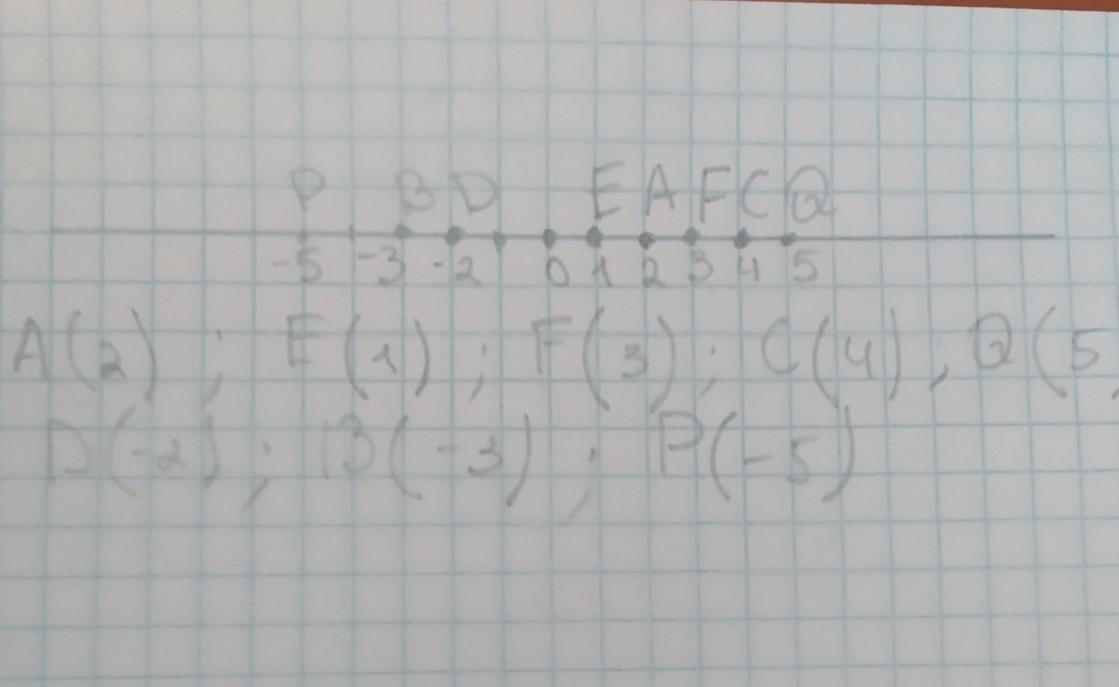 P B D E A F C Q
-5 -3 -2 0 1 2 3 4 5
A(2) ; E(1) ; F(3) ; C(4) , Q(5
D(-2) ; B(-3) ; P(-5)